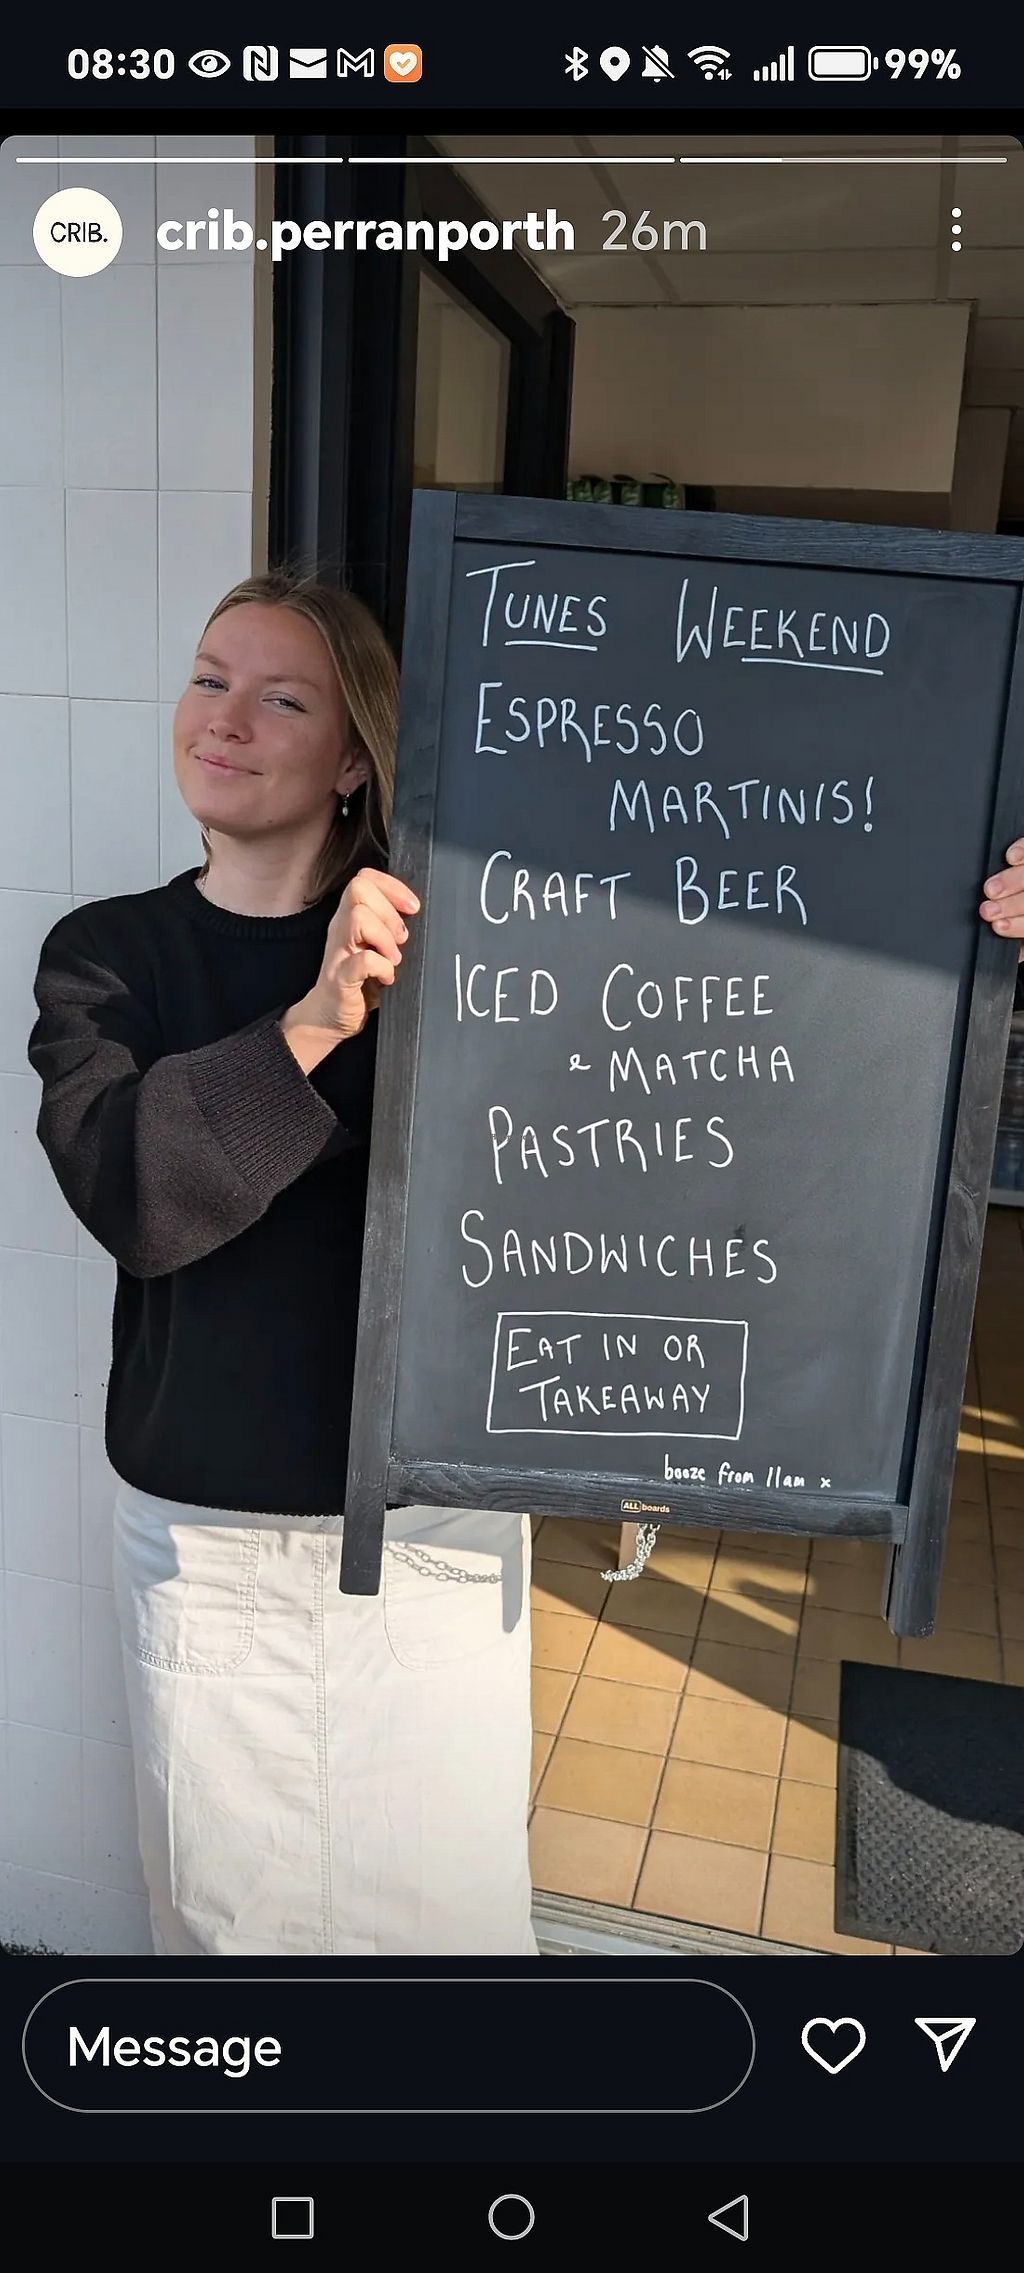 08:30
99%
CRIB.
crib.perranporth 26m
TUNES WEEKEND
ESPRESSO
MARTINIS!
CRAFT BEER
ICED COFFEE
& MATCHA
PASTRIES
SANDWICHES
EAT IN OR
TAKEAWAY
booze from 11am x
ALLboards
Message